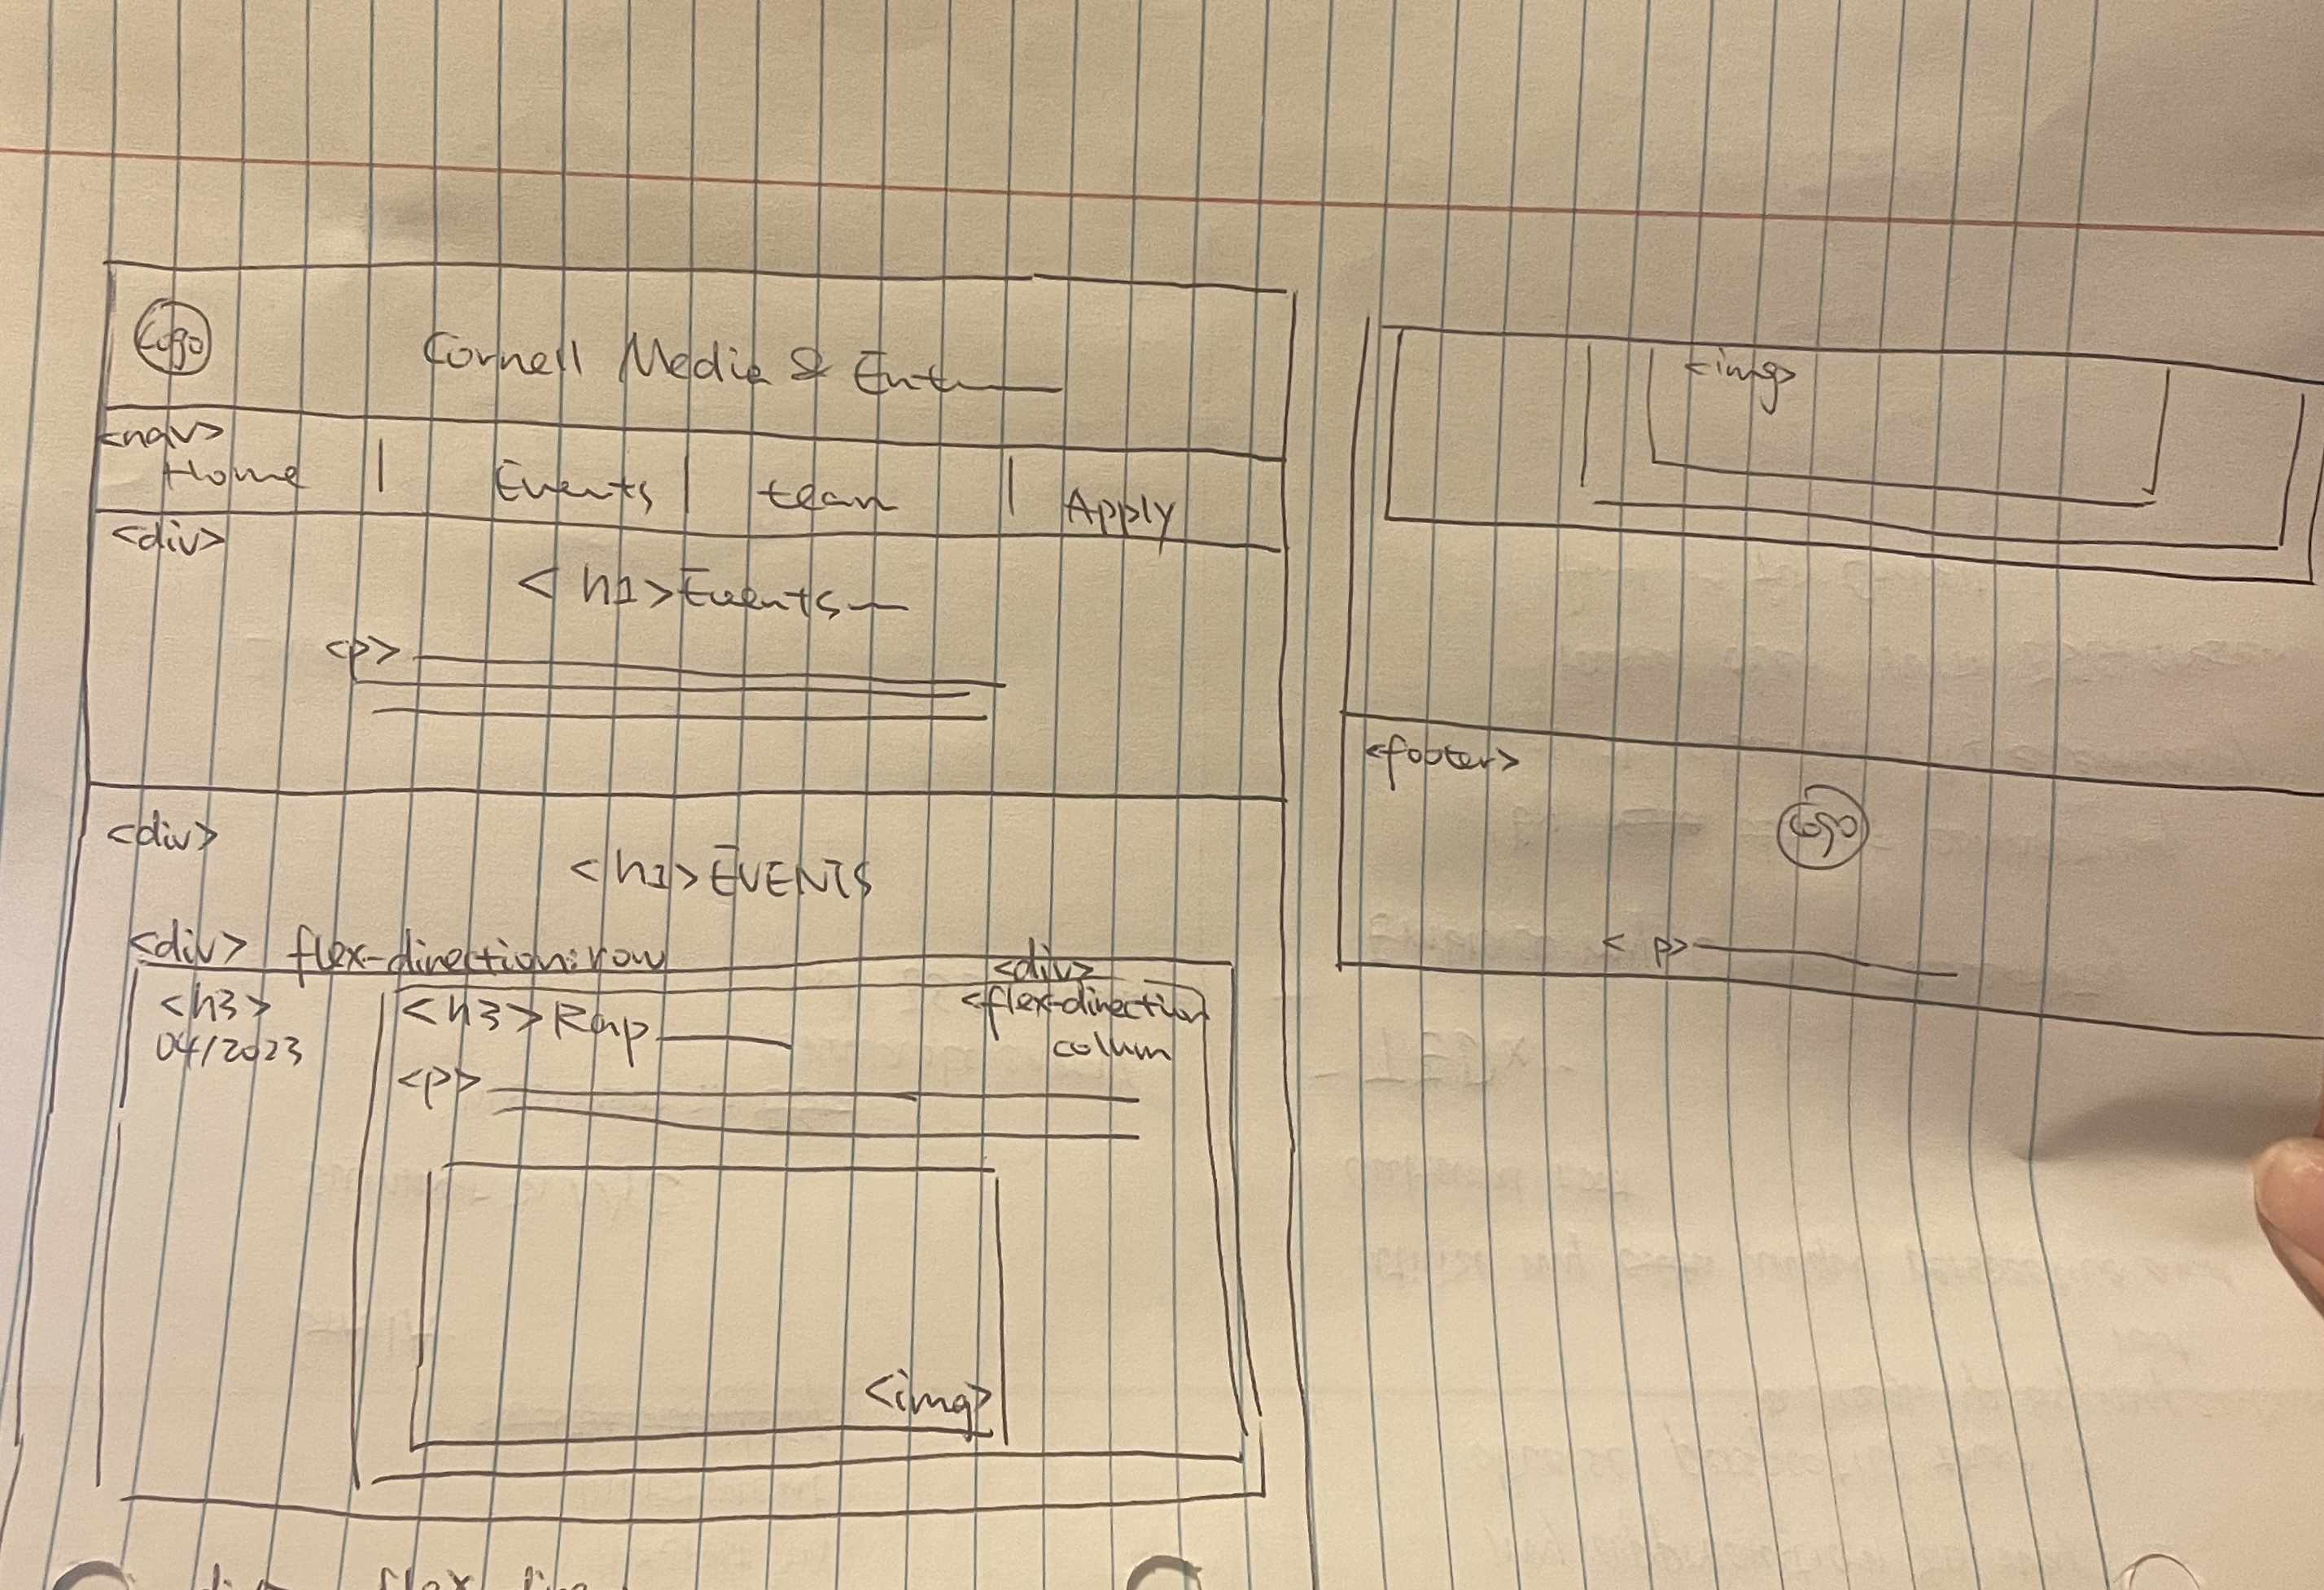 Logo
Cornell Media & Ent
<nav>
Home | Events | team | Apply
<div>
<h1>Events
<p>
<div>
<h1>EVENTS
<div> flex-direction:row
<div>
<h3>
04/2023
<h3>Rap
<flex-direction
colum
<p>
<img>
<img>
<footer>
Logo
<p>